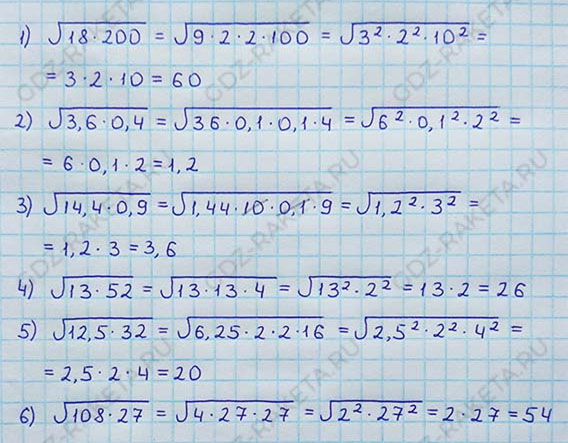 1) √18·200 = √9·2·2·100 = √3²·2²·10² =
= 3·2·10 = 60
2) √3,6·0,4 = √36·0,1·0,1·4 = √6²·0,1²·2² =
= 6·0,1·2 = 1,2
3) √14,4·0,9 = √1,44·10·0,1·9 = √1,2²·3² =
= 1,2·3 = 3,6
4) √13·52 = √13·13·4 = √13²·2² = 13·2 = 26
5) √12,5·32 = √6,25·2·2·16 = √2,5²·2²·4² =
= 2,5·2·4 = 20
6) √108·27 = √4·27·27 = √2²·27² = 2·27 = 54
GDZ-RAKETA.RU